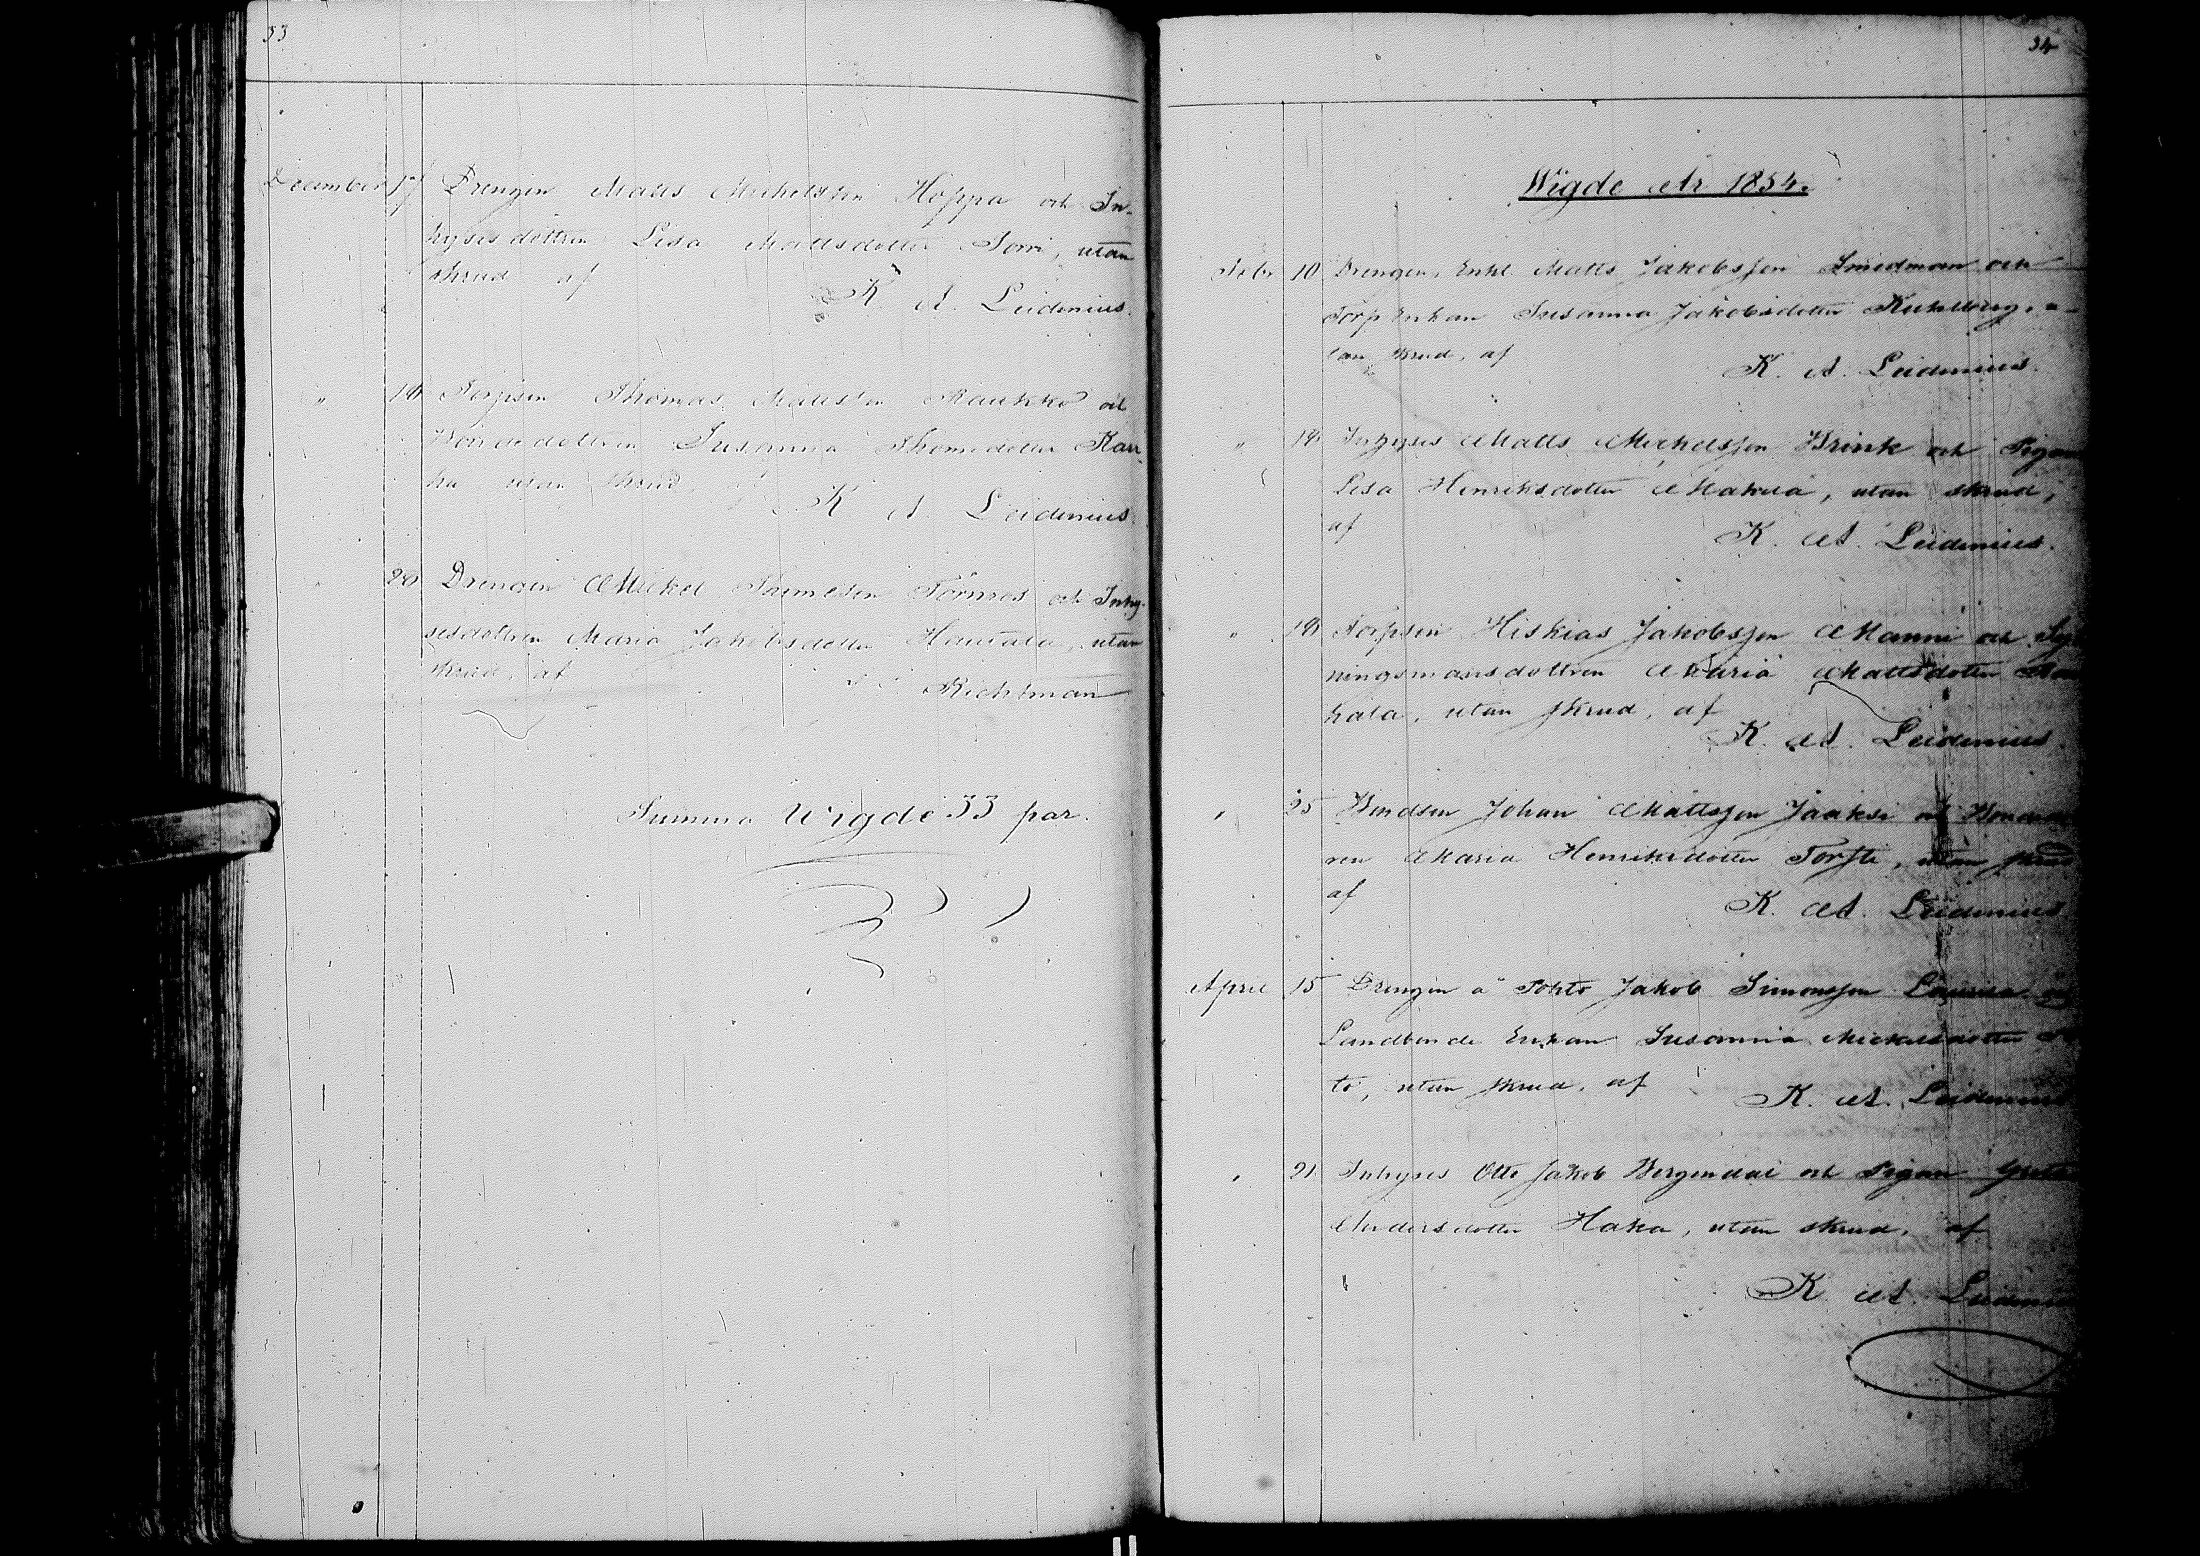 33
December 17 Drengen Matts Michelsson Hoppa och In-
hysesdottren Lisa Mattsdotter Sorri, utan
skrud af
K. A. Leidenius.
" 18 Torpsen Thomas Mattsson Raukko och
Bondedottren Susanna Thomedotter Kau-
ha utan skrud
K. A. Leidenius
28 Drengen Mickel Samelsen Törnros och Inhy-
sesdottren Maria Jakobsdotter Hautala, utan
skrud, af
Richtman
Summa Wigde 33 par.
34
Wigde År 1854.
Febr 10 Drengen, Enkl. Matts Jakobsson Smedman och
Torp Enkan Susanna Jakobsdotter Kuhlberg, u-
tan skrud, af
K. A. Leidenius.
" 18 Inhyses Matts Michelsson Brink och Pigan
Lisa Henriksdotter Makela, utan skrud,
af
K. A. Leidenius.
" 18 Torpsen Hiskias Jakobsson Manni och
ningsmansdottren Maria Mattsdotter
kala, utan skrud, af
K. A. Leidenius.
" 25 Bondsen Johan Mattsson Jaaksi och
ren Maria Henriksdotter Torsti, utan skrud
af
K. A. Leidenius
April 15 Drengen å Pohto Jakob Simonsson Laurila
Landbonde Enkan Susanna Mickelsdotter
to, utan skrud, af
K. A. Leidenius
" 21 Inhyses Otto Jakob Bergendal och Pigan Greta
Andersdotter Haka, utan skrud, af
K. A. Leidenius